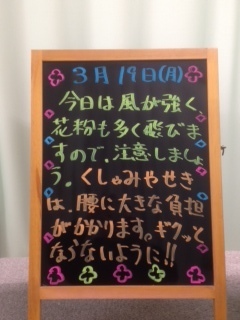 3月19日(月)
今日は風が強く、
花粉も多く飛びま
すので、注意しましょ
う。くしゃみやせき
は、腰に大きな負担
がかかります。ギクッと
ならないように!!